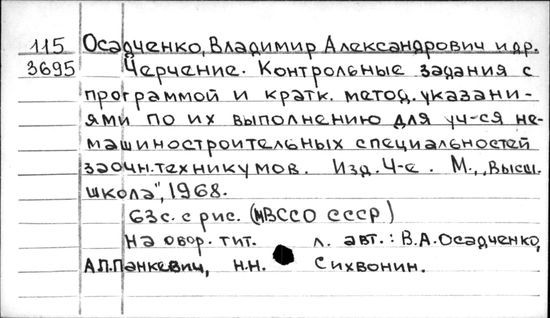 115 Осадченко, Владимир Александрович и др.
3695 Черчение. Контрольные задания с
программой и кратк. метод. указани-
ями по их выполнению для уч-ся не-
машиностроительных специальностей
заочн. техникумов. Изд. 4-е. М., „Высш.
школа", 1968.
63с. с рис. (МВССО СССР)
на обор. тит. л. авт.: В.А. Осадченко,
А.П. Панкевич, Н.Н. Сихвонин.